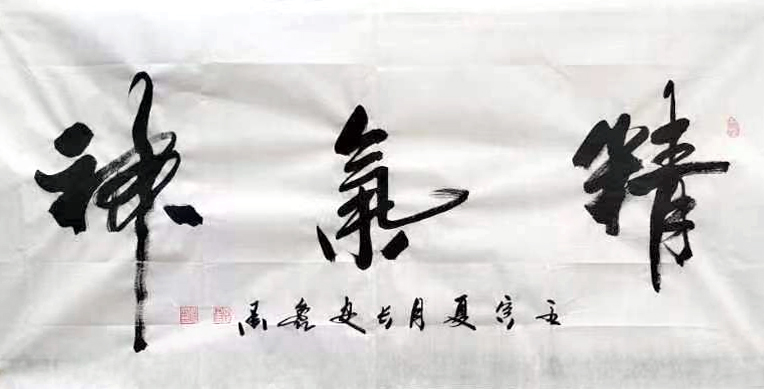 精氣神
壬寅夏月長安